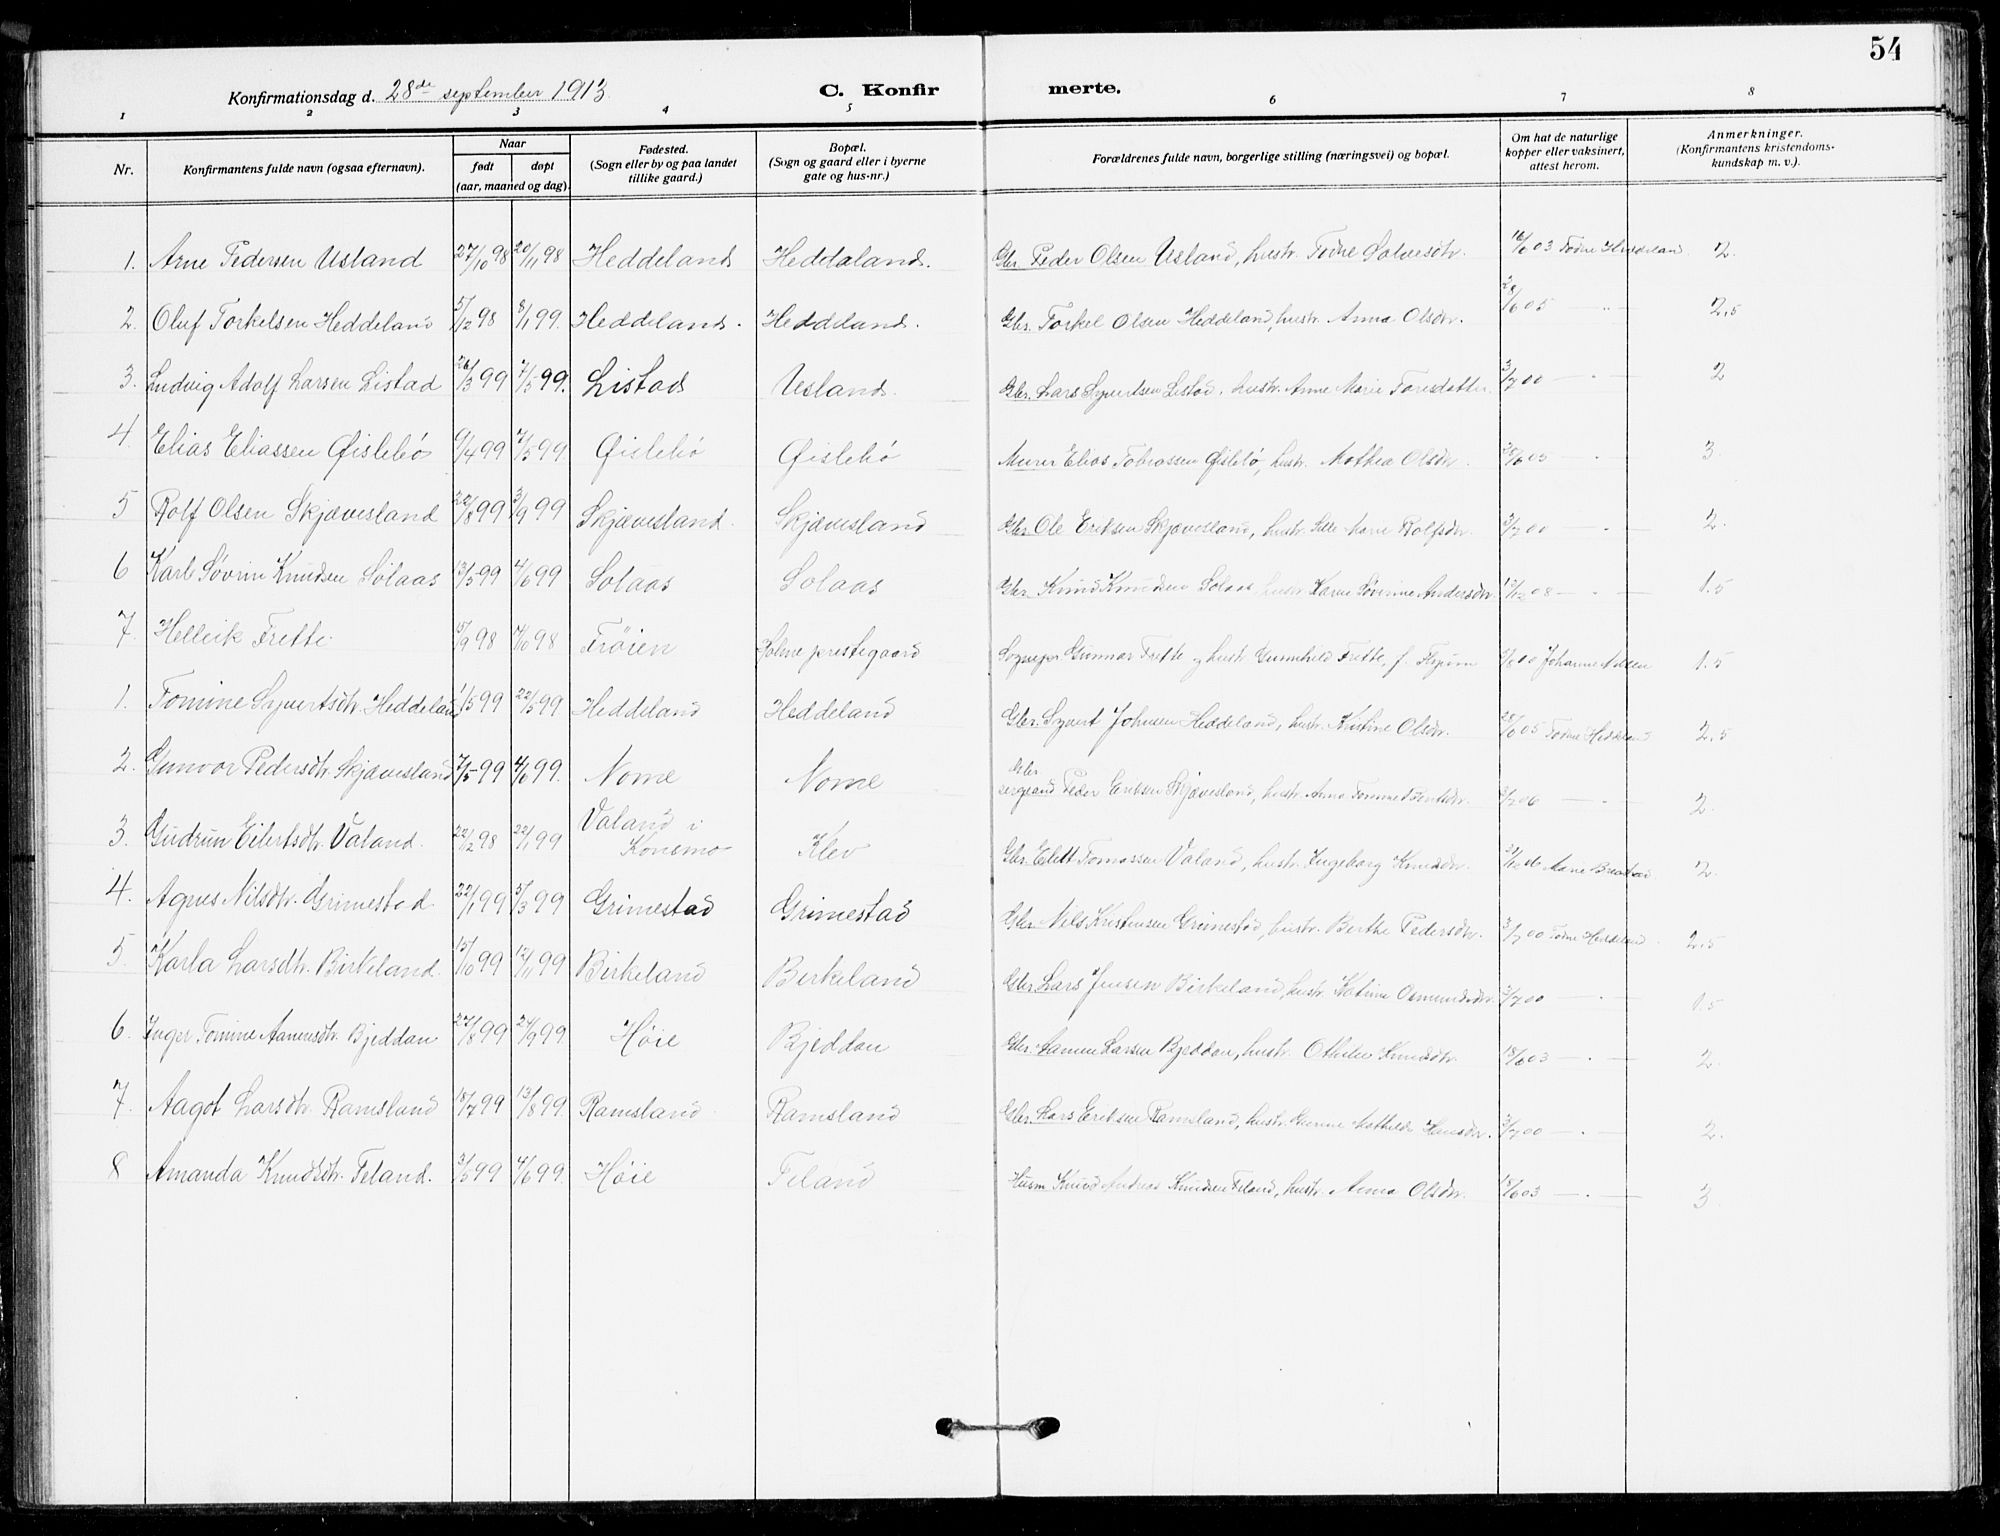 54
Konfirmationsdag d. 28de september 1913. C. Konfir merte.
1 2 3 4 5 6 7 8
Nr. Konfirmantens fulde navn (ogsaa efternavn). Naar født døpt (aar, maaned og dag). Fødested. (Sogn eller by og paa landet tillike gaard.) Bopæl. (Sogn og gaard eller i byerne gate og hus-nr.) Forældrenes fulde navn, borgerlige stilling (næringsvei) og bopæl. Om hat de naturlige kopper eller vaksinert, attest herom. Anmerkninger. (Konfirmantens kristendomskundskap m. v.).
1. Arne Pedersen Usland 27/10 98 20/11 98 Heddeland Heddeland. Gbr. Peder Olsen Usland, hustr. Todne Salvesdtr. 16/6 03 Todne Heddeland 2.
2. Oluf Torkelsen Heddeland 5/12 98 8/1 99. Heddeland. Heddeland. Gbr. Torkel Olsen Heddeland, hustr. Anna Olsdtr. /6 05 2,5
3. Ludvig Adolf Larsen Listad 26/3 99 7/5 99. Listad Usland. Gbr. Lars Syvertsen Listad, hustr. Anne Marie 3/7 00 2
4. Elias Eliassen Øislebø 9/4 99 7/5 99 Øislebø Øislebø Murer Elias Tobiassen Øislebø, hustr. Mathea Olsdtr. 3.
5 Rolf Olsen Skjævesland 22/8 99 3/9 99 Skjævesland. Skjævesland Gbr. Ole Eriksen Skjævesland, hustr. Marie Rolfsdtr. 3/7 00 2.
6 Karl Søvrin Knudsen Solaas 13/5 99 4/6 99 Solaas Solaas Gbr. Knud Knudsen Solaas, hustr. Karen Søvrine Andersdtr. /12 08 1.5
7. Helleik Frette. 15/9 98 /10 98 Frøien Holme prestegaard Sognepr. Gunnar Frette og hustr. Gunnhild Frette, f. 00 Johanne 1.5
1. Tomine Syvertsdtr. Heddeland 1/5 99 22/5 99 Heddeland Heddeland Gbr. Syvert Johnsen Heddeland, hustr. Kristine Olsdtr. /6 05 Todne Heddeland 2,5
2. Gunvor Pedersdtr. Skjævesland 7/5 99 4/6 99. Nome Nome Gbr sergeand Peder Eriksen Skjævesland, hustr. Anna 3/7 06 2.
3. Gudrun Eilertsdtr. Valand. 22/12 98 22/1 99 Valand i Konsmo Klev Gbr. Eilert Tomassen Valand, hustr. Ingeborg Knudsdtr. 06 Marie 2.
4. Agnes Nilsdtr. Grimestad. 22/1 99 5/3 99 Grimestad Grimestad Gbr. Nils Kristensen Grimestad, hustr. Berthe Pedersdtr. 3/7 00 Todne Heddeland. 2,5
5. Karla Larsdtr. Birkeland. 15/10 99 12/11 99 Birkeland Birkeland Gbr. Lars Jensen Birkeland, hustr. Katrine Osmundsdtr. 3/7 00 1.5
6. Inger Tomine Aanensdtr. Bjeddan 27/8 99 24/9 99. Høie Bjeddan Gbr. Aanen Larsen Bjeddan, hustr. Othilie Knudsdtr. 18/6 03 2.
7. Aagot Larsdtr. Ramsland 18/7 99 13/8 99. Ramsland. Ramsland Gbr. Lars Eriksen Ramsland, hustr. Mathilde 3/7 00 2.
8 Amanda Knudsdtr. Feland. 3/5 99 4/6 99. Høie Feland Husm Knud Andreas Knudsen Feland, hustr. Anna Olsdtr. 18/6 03 3